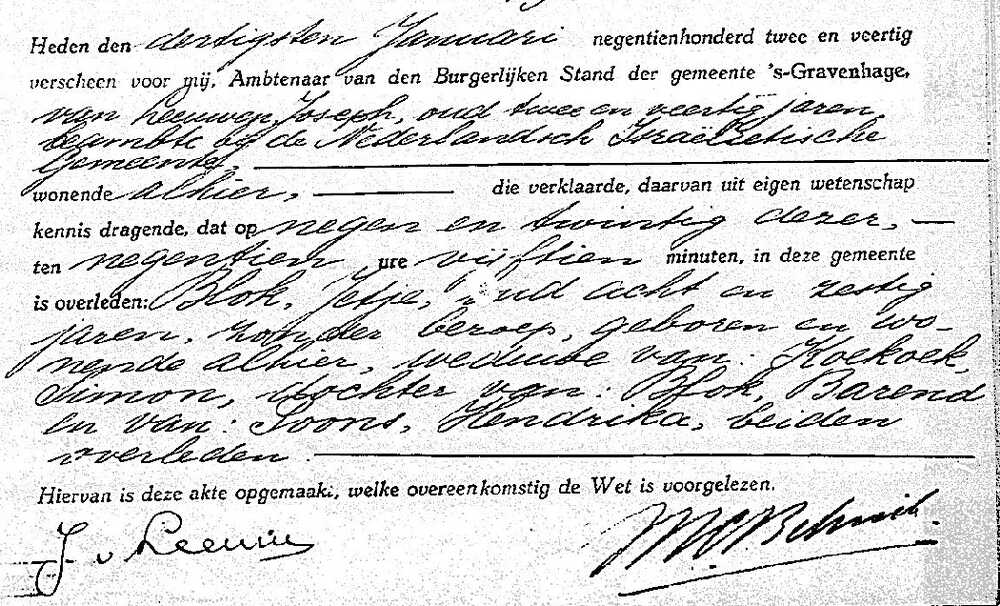 Heden den dertigsten Januari negentienhonderd twee en veertig
verscheen voor mij, Ambtenaar van den Burgerlijken Stand der gemeente 's-Gravenhage,
van Leeuwen, Joseph, oud twee en veertig jaren,
beambte bij de Nederlandsch Israëlietische
Gemeente,
wonende alhier, die verklaarde, daarvan uit eigen wetenschap
kennis dragende, dat op negen en twintig dezer,
ten negentien ure vijftien minuten, in deze gemeente
is overleden: Blok, Jetje, oud acht en zestig
jaren, zonder beroep, geboren en wo-
nende alhier, weduwe van: Koekoek,
Simon, dochter van: Blok, Barend
en van: Soons, Hendrika, beiden
overleden.
Hiervan is deze akte opgemaakt, welke overeenkomstig de Wet is voorgelezen.
J. v. Leeuwen